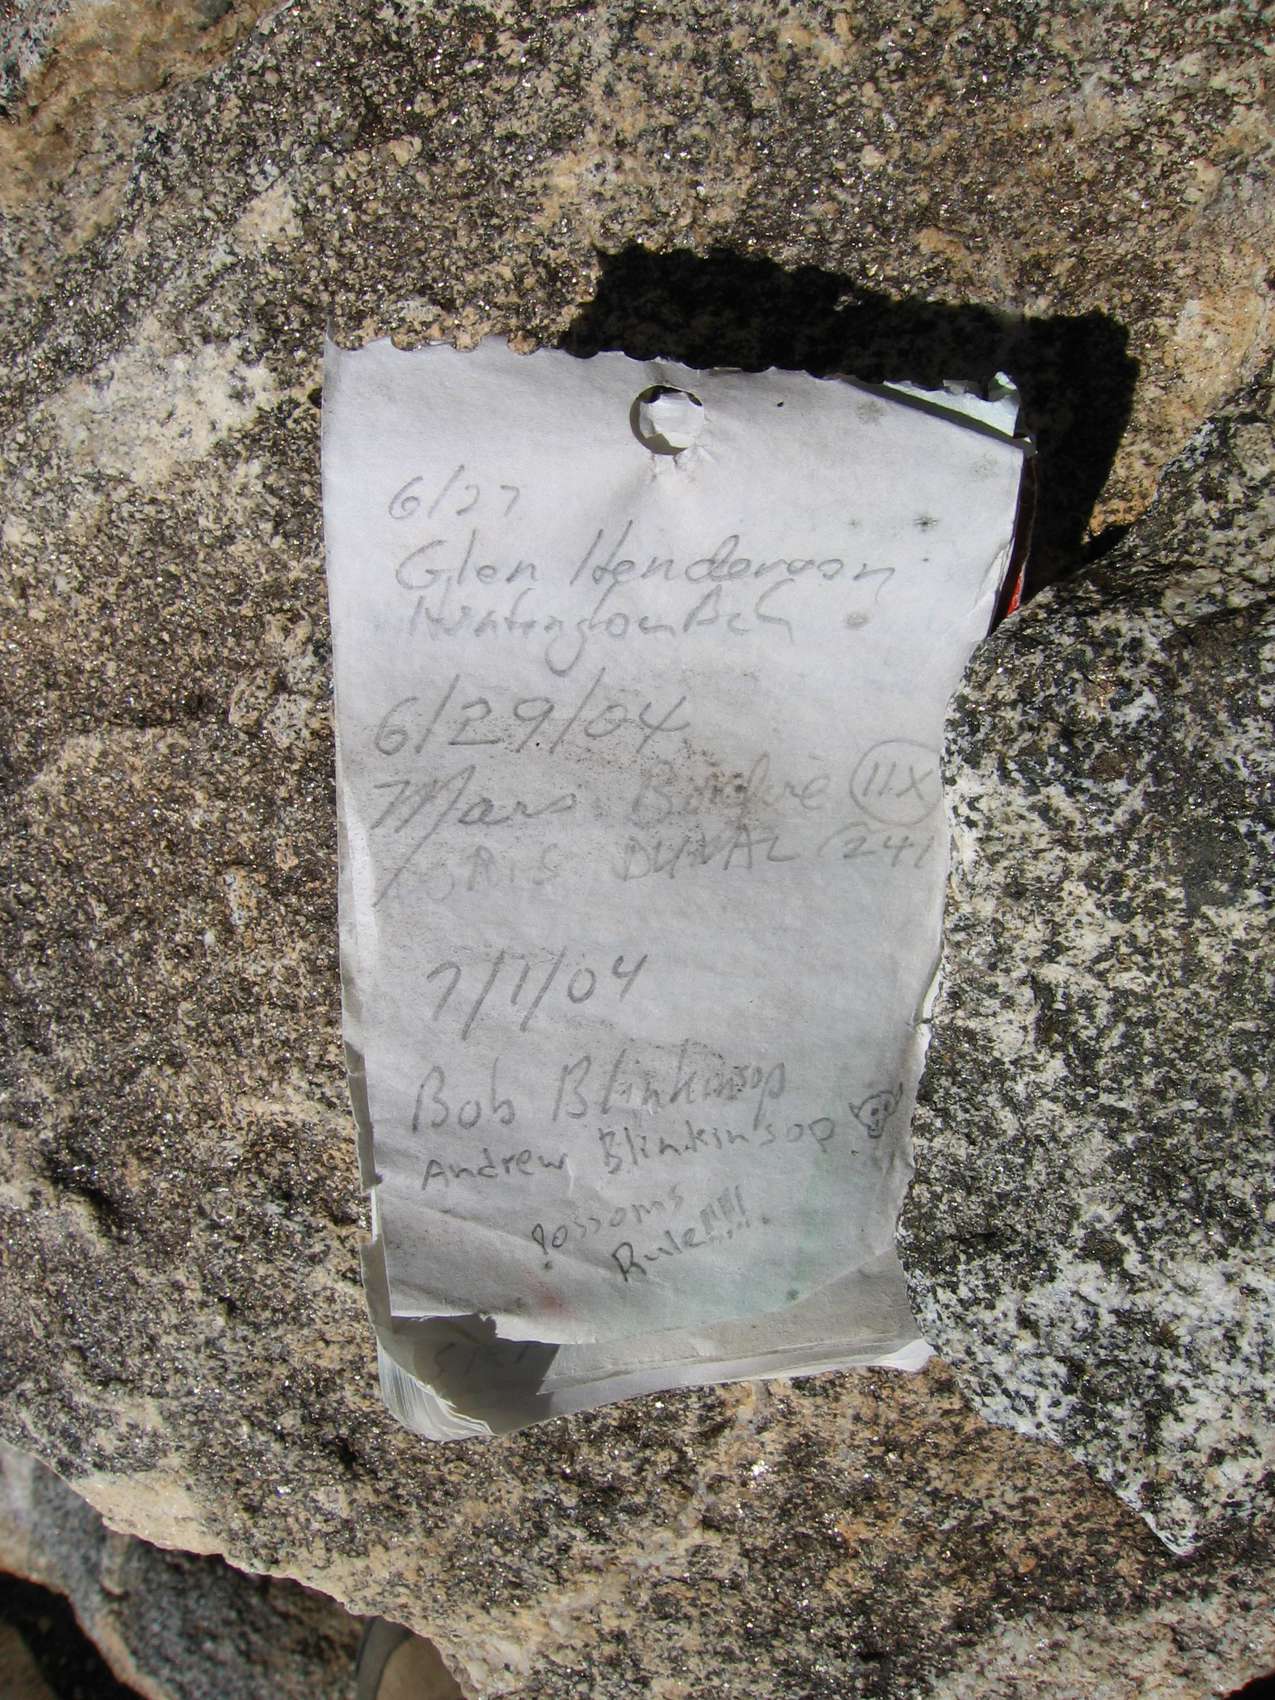 6/27
Glen Henderson
Huntington Bch
6/29/04
Mars Bonfire (11X)
DUVAL (24)
7/1/04
Bob Blinkinsop
Andrew Blinkinsop
Possoms
Rule!!!!